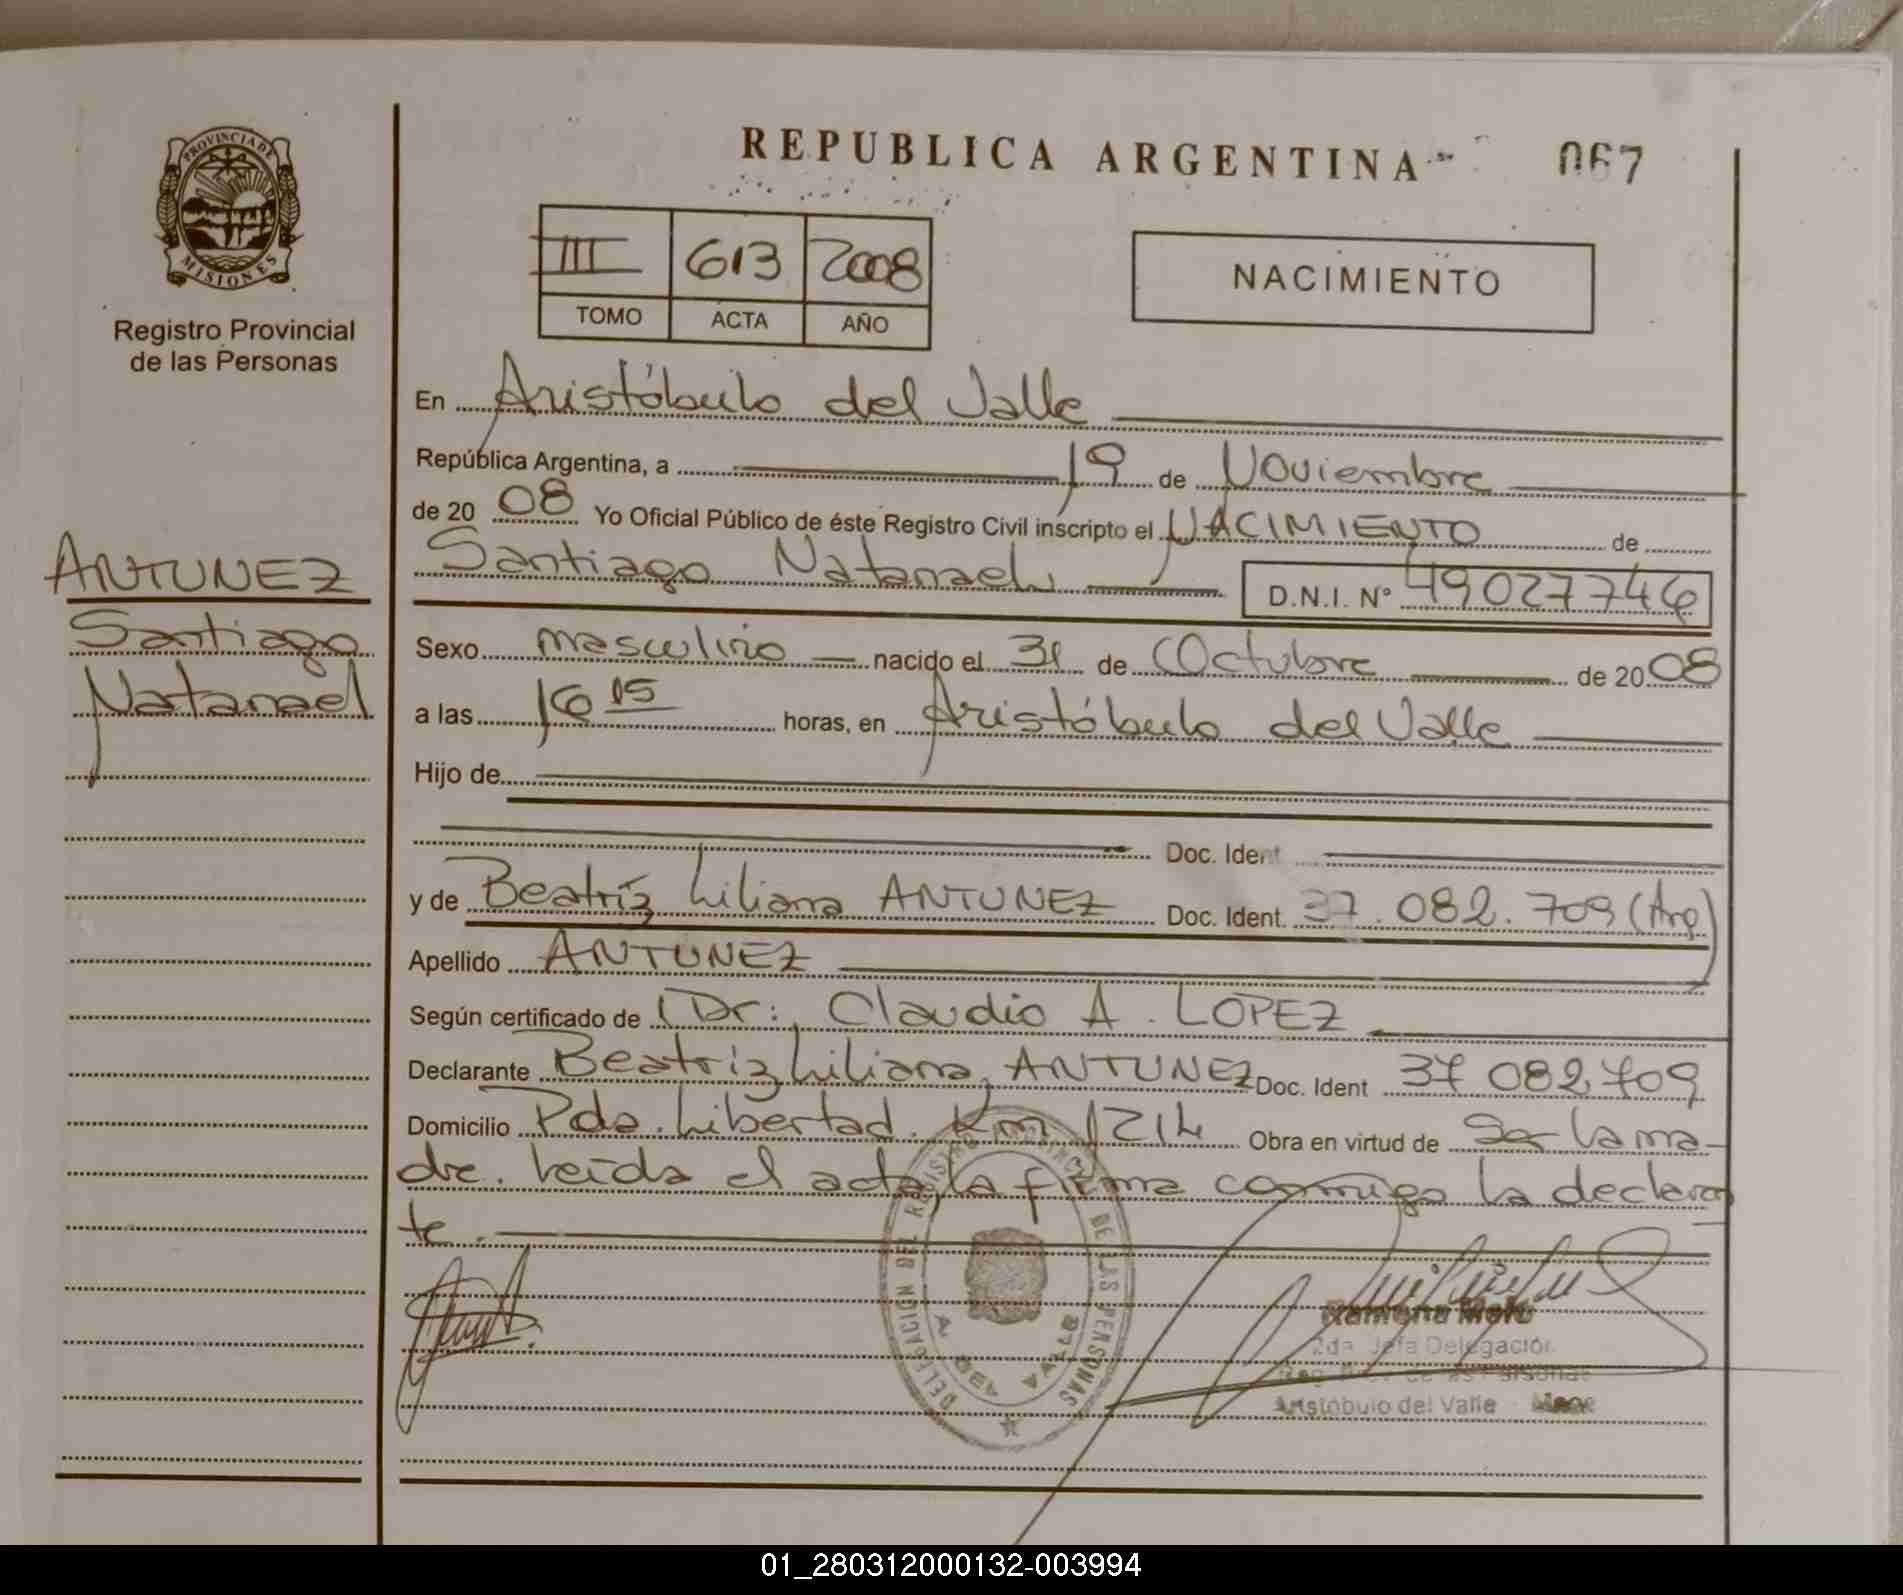 REPUBLICA ARGENTINA 067
PROVINCIA DE
MISIONES
Registro Provincial
de las Personas
III 613 2008
TOMO ACTA AÑO
NACIMIENTO
En Aristóbulo del Valle
República Argentina, a 19 de Noviembre
de 20 08 Yo Oficial Público de éste Registro Civil inscripto el NACIMIENTO de
Santiago Natanael D.N.I. Nº 49027746
Sexo masculino nacido el 31 de Octubre de 20 08
a las 16 15 horas, en Aristóbulo del Valle
Hijo de
Doc. Ident
y de Beatríz Liliana ANTUNEZ Doc. Ident. 37.082.709 (Arg)
Apellido ANTUNEZ
Según certificado de Dr: Claudio A. LOPEZ
Declarante Beatríz Liliana ANTUNEZ Doc. Ident 37 082 709
Domicilio Pdo. Libertad. Km 1214 Obra en virtud de Ser la ma-
dre. Leída el acta, la firma conmigo la declaran
te.
ANTUNEZ
Santiago
Natanael
DELEGACION DEL REGISTRO PROVINCIAL DE LAS PERSONAS
Ramona Melo
2da Jefa Delegación
Reg. Prov. de las Personas
Aristóbulo del Valle Mnes
01_280312000132-003994